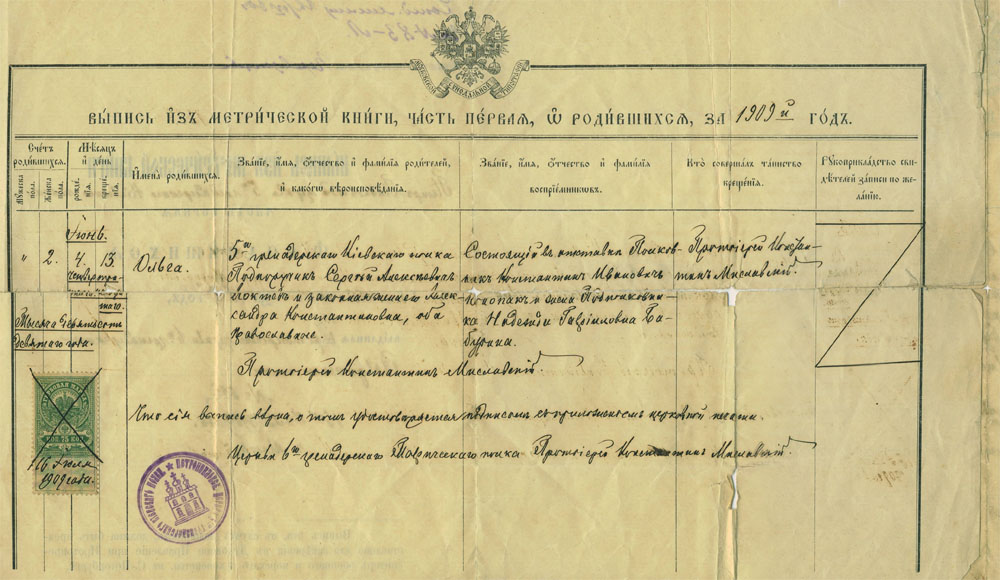 ВЫПИСЬ ИЗЪ МЕТРИЧЕСКОЙ КНИГИ, ЧАСТЬ ПЕРВАЯ, Ѿ РОДИВШИХСЯ, ЗА 1909й ГОДЪ.
Счетъ родившихся.
Мужеска пола.
Женска пола.
Мѣсяцъ и день
рожденія.
крещенія.
Имена родившихся.
Званіе, имя, отчество и фамилія родителей,
и какого вѣроисповѣданія.
Званіе, имя, отчество и фамилія
воспріемниковъ.
Кто совершалъ таинство
крещенія.
Рукоприкладство свидѣтелей записи по желанію.
"
2.
Іюнь.
4. 13.
Тысяча девятьсотъ
девятаго года.
Ольга.
5го гренадерскаго Кіевскаго полка
Подпоручикъ Сергѣй Алексѣевичъ
Локтевъ и законная жена его Алек-
сандра Константиновна, оба
православные.
Протоіерей Константинъ Миславскій.
Состоящій въ отставкѣ Полков-
никъ Константинъ Ивановичъ
и жена Подполковни-
ка Надежда Гавріиловна Ба-
бурина.
Протоіерей Констан-
тинъ Миславскій.
Что сія выпись вѣрна, о томъ удостовѣряется подписомъ съ приложеніемъ церковной печати.
Церкви 6го гренадерскаго Таврическаго полка Протоіерей Константинъ Миславскій.
КОП. 75 КОП.
16 Іюля
1909 года.